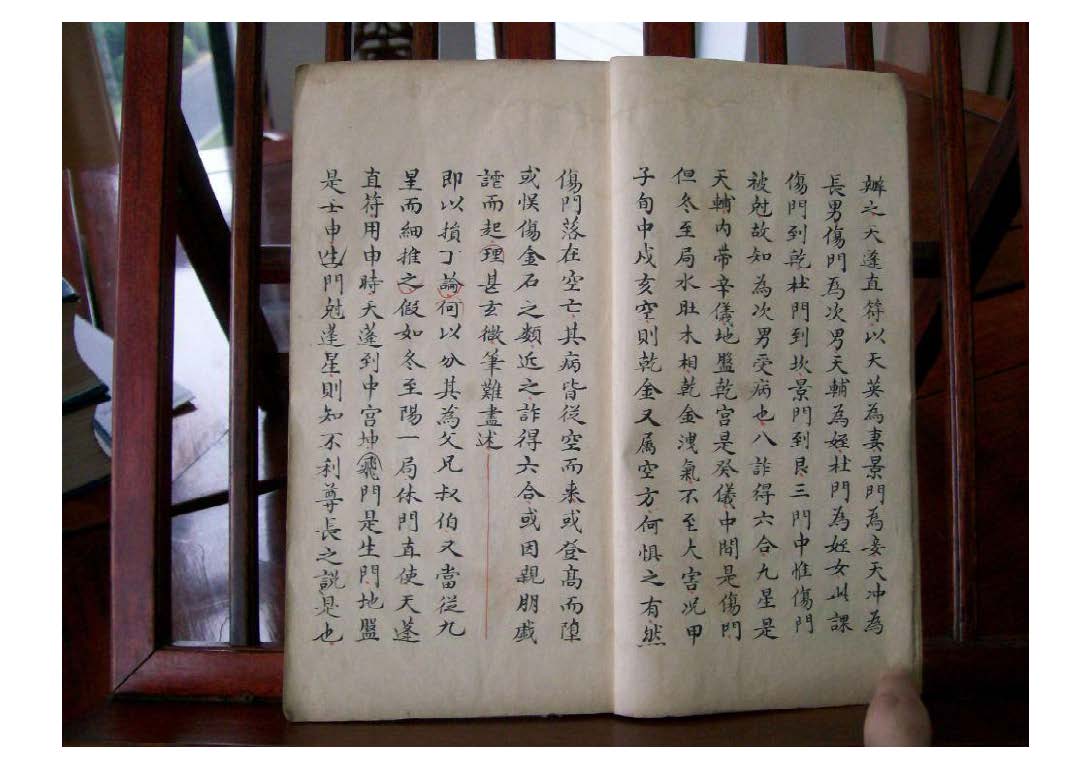 辦之天蓬直符以天英為妻景門為妾天冲為
長男傷門為次男天輔為姪杜門為姪女此課
傷門到乾杜門到坎景門到艮三門中惟傷門
被尅故知為次男受病也八詐得六合九星是
天輔内帶辛儀地盤乾宫是癸儀中間是傷門
但冬至局水肚木相乾金洩氣不至大害况甲
子旬中戌亥空則乾金又属空方何惧之有然
傷門落在空亡其病皆從空而来或登髙而墮
或悞傷金石之類近之詐得六合或因親朋戯
謔而起理甚玄微筆難盡述
即以損丁論何以分其為父兄叔伯又當從九
星而細推之假如冬至陽一局休門直使天蓬
直符用申時天蓬到中宫坤飛門是生門地盤
是壬申生門尅蓬星則知不利尊長之説是也